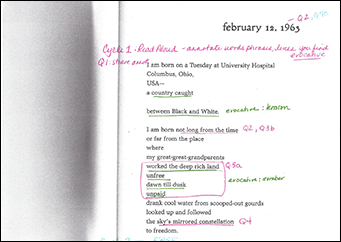 - Q2,
february 12, 1963
Cycle 1 - Read Aloud - annotate words, phrases, lines you find
evocative
Q1: share aways
I am born on a Tuesday at University Hospital
Columbus, Ohio,
USA—
a country caught
between Black and White. evocative: kraom
I am born not long from the time Q2, Q3b
or far from the place
where
my great-great-grandparents
worked the deep rich land Q3a
unfree
dawn till dusk evocative: ember
unpaid
drank cool water from scooped-out gourds
looked up and followed
the sky's mirrored constellation Q4
to freedom.